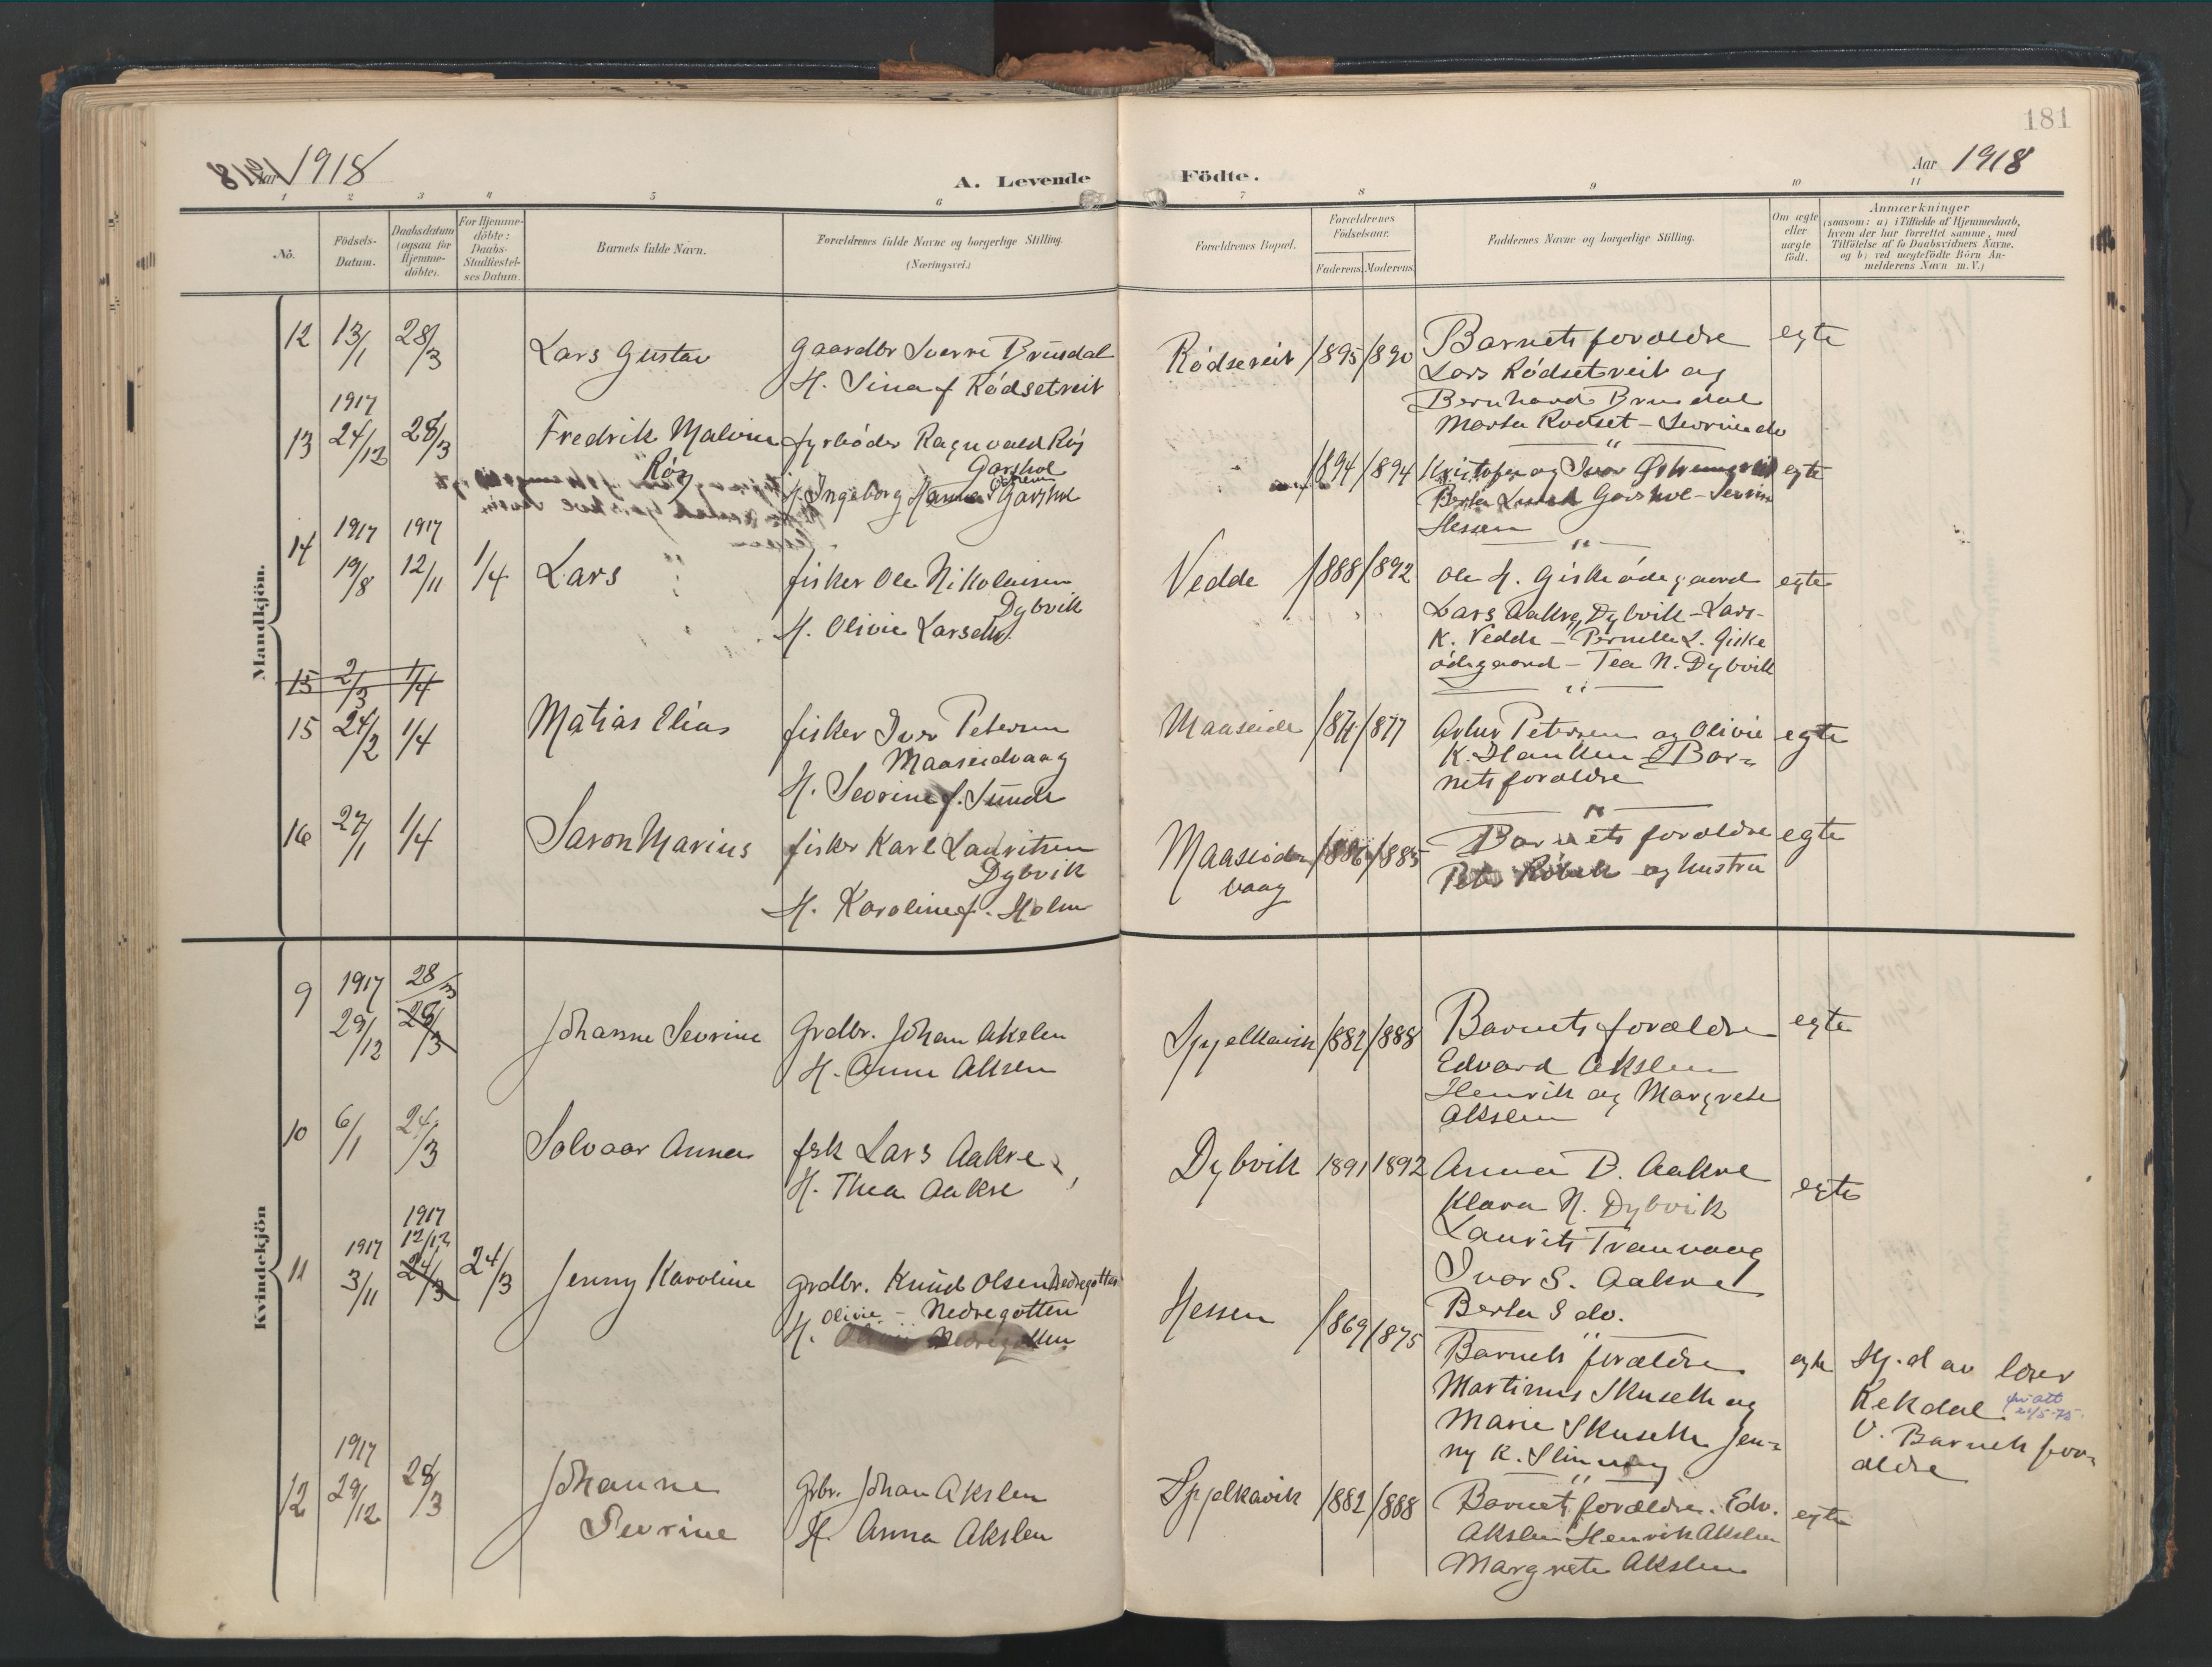 181
Aar 1918
A. Levende
Födte.
Aar 1918
1 2 3 4 5 6 7 8 9 10 11
No.
Födsels-
Datum.
Daabsdatum
(ogsaa for
Hjemme-
döbte).
For Hjemme-
döbte:
Daabs-
Stadfæstel-
ses Datum.
Barnets fulde Navn.
Forældrenes fulde Navne og borgerlige Stilling.
(Næringsvei.)
Forældrenes Bopæl.
Forældrenes
Födselsaar.
Faderens. Moderens.
Faddernes Navne og borgerlige Stilling.
Om ægte
eller
uægte
födt.
Anmærkninger
(saasom: a) i Tilfælde af Hjemmedaab,
hvem der har forrettet samme, med
Tilföielse af to Daabsvidners Navne.
og b) ved uægtefödte Börn An-
melderens Navn m. V.)
Mandkjön.
12 13/1 28/3 Lars Gustav
Gaardbr Sverre Brusdal
H. Sina f Rödsetreit
Rödsereit 1895 1890
Barnets forældre egte
Lars Rödsetreit og
Bernhard Brusdal
Marta Rødset - Sevrine do
1917
13 24/12 28/3 Fredrik Malvin
Röy
fyrböder Ragnvald Röy
Garshol
H. Ingeborg Hanna Garshol
1894 1894
Kristofer og Ivar egte
Berta Garshol - Sevrin
Hessen
14 1917 1917
19/8 12/11 1/4 Lars
fisker Ole Nikolaisen
Dybvik
H. Olivie Larsdtr.
Vedde 1888 1892
Ole H. Giskeödegaard egte
Lars Aakre, Dybvik - Lars
K. Vedde - Pernelle L. Giske
ödegaard - Tea N. Dybvik
15 2/3 1/4
15 24/2 1/4 Matias Elias
fisker Iver Petersen
Maaseidvaag
H. Sevrine f. Sunde
Maaseide 1874 1877
Artur Petersen og Olivie egte
K. Hanken - Bar-
nets forældre
16 27/1 1/4 Saron Marius
fisker Karl Lauritsen
Dybvik
H. Karoline f. Holm
Maaseide
vaag 1886 1885
Barnets forældre egte
Peter og hustru
Kvindekjön
9 1917 28/3
29/12 28/3 Johanne Sevrine
Grdbr. Johan Akslen
H. Anne Akslen
Spjelkavik 1882 1888
Barnets forældre egte
Edvard Akslen
Henrik og Margrete
Akslen
10 6/1 24/3 Solvaar Anna
fsk Lars Aakre
H. Thea Aakre
Dybvik 1891 1892
Anna B. Aakre egte
Klara N. Dybvik
Laurits Tranvaag
Ivar S. Aakre
Berta S do.
1917
11 1917 12/12
3/11 24/3 24/3 Jenny Karoline
Grdbr. Knud Olsen Nedregotten
Olivie - Nedregotten
H. Olivie Nedregotten
Hessen 1869 1875
Barnets forældre egte
Martinus Skuseth og
Marie Skuseth Jen-
ny K. Slinning
Hj. d av lærer
Kekdal
V. Barnets for-
ældre
1917
12 29/12 28/3 Johanne
Sevrine
Grbr. Johan Akslen
H. Anna Akslen
Spjelkavik 1882 1888
Barnets forældre. Edv. egte
Akslen Henrik Akslen
Margrete Akslen